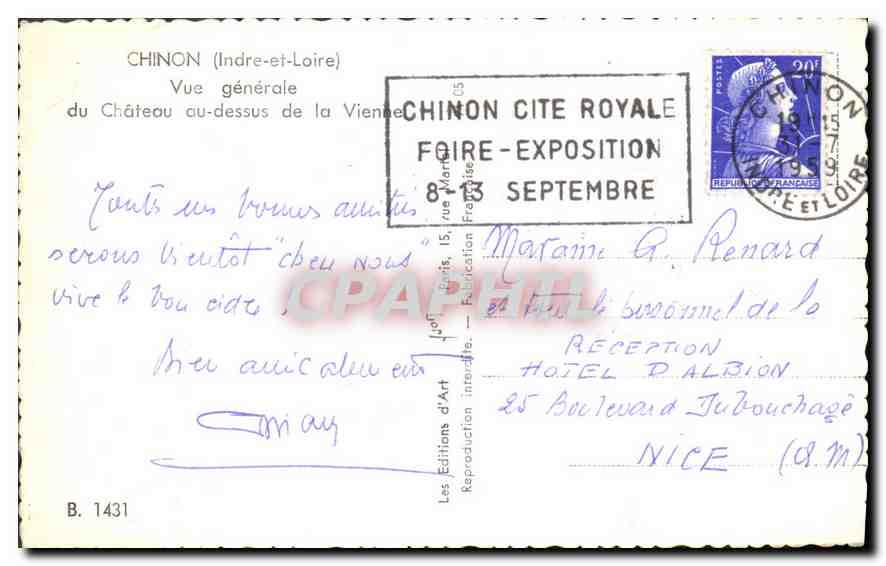 CHINON (Indre-et-Loire)
Vue générale
du Château au-dessus de la Vienne
CHINON CITE ROYALE
FOIRE - EXPOSITION
8-13 SEPTEMBRE
POSTES
20F
REPUBLIQUE FRANÇAISE
CHINON
19 15
1959
INDRE ET LOIRE
bonnes amitiés
serons bientôt "cheu nous"
vive le bon cidre
Bien amicalement
Les Editions d'Art Yvon Paris, 15, rue Martel
Reproduction interdite. — Fabrication Française
Madame G. Renard
et tout le personnel de la
RECEPTION
HOTEL D'ALBION
25 Boulevard Dubouchage
NICE (A M)
B. 1431
CPAPHIL